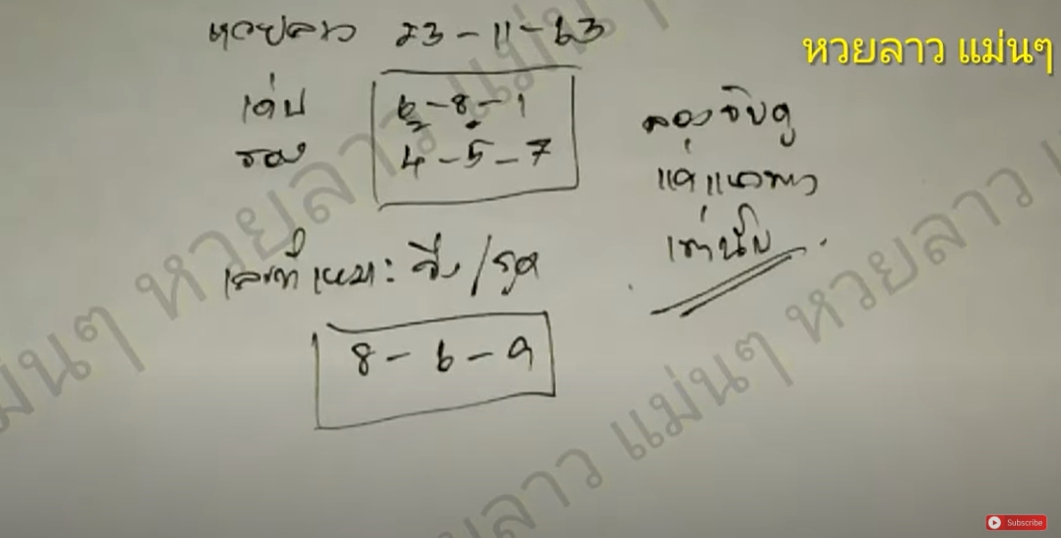 หวยลาว 23-11-63
หวยลาว แม่นๆ
เด่น 6-8-1
รอง 4-5-7
ลองจับดู
แค่แนวทาง
เท่านั้น
เลขที่เหมาะ: วิ่ง/รูด
8-6-9
หวยลาว แม่นๆ
Subscribe